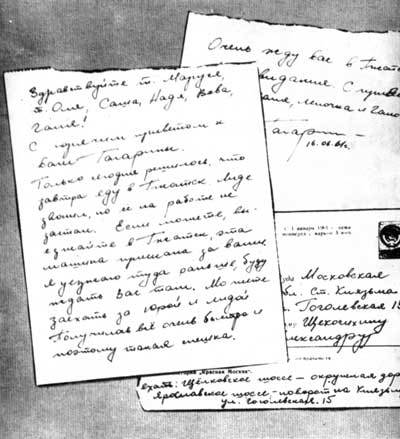 Здравствуйте т. Маруся,
т. Оля, Саша, Надя, Вова,
Галя!
С горячим приветом к
Вам Гагарины.
Только сегодня решилось, что
завтра еду в Гжатск. Лиде
звонил, но ее на работе не
застал. Если можете, вы-
езжайте в Гжатск, эта
машина прислана за вами.
Я уезжаю туда раньше, буду
ждать Вас там. Можете
заехать за Юрой и Лидой
Получилось всё очень быстро и
поэтому такая спешка.
Очень жду вас в Гжатске
свидания. С приве
Гагарин
16.06.61г.
с 1 января 1961 г. цена
Московская
обл. Ст. Клязьма
Гоголевская 15
Щекочихину
Александру
"Красная Москва"
ехать: Щелковское шоссе – окружная дор
Ярославское шоссе – поворот на Клязьм
ул. Гоголевская. 15